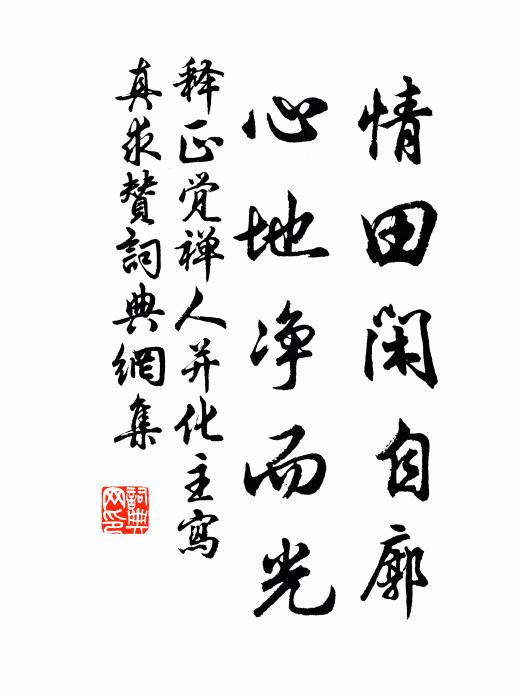 情田闲自廓
心地净而光
释正觉禅人并化主寫
真求贊詞典網集
詞典网印